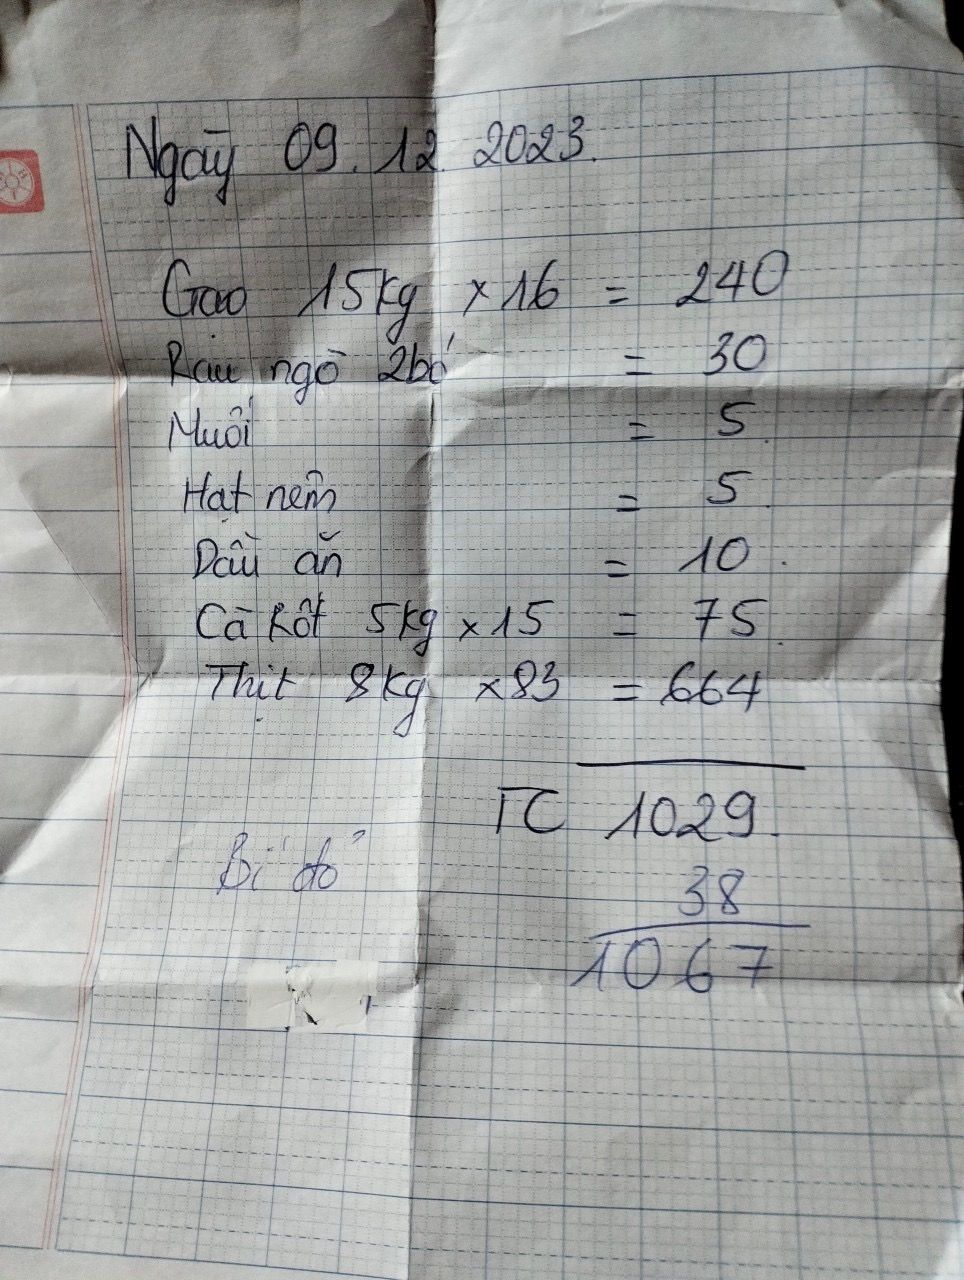 Ngày 09.12.2023.
Gạo 15kg x16 = 240
Rau ngò 2bó = 30
Muối = 5.
Hạt nêm = 5.
Dầu ăn = 10.
Cà Rốt 5kg x15 = 75.
Thịt 8kg x83 = 664
TC 1029.
Bí đỏ 38
1067